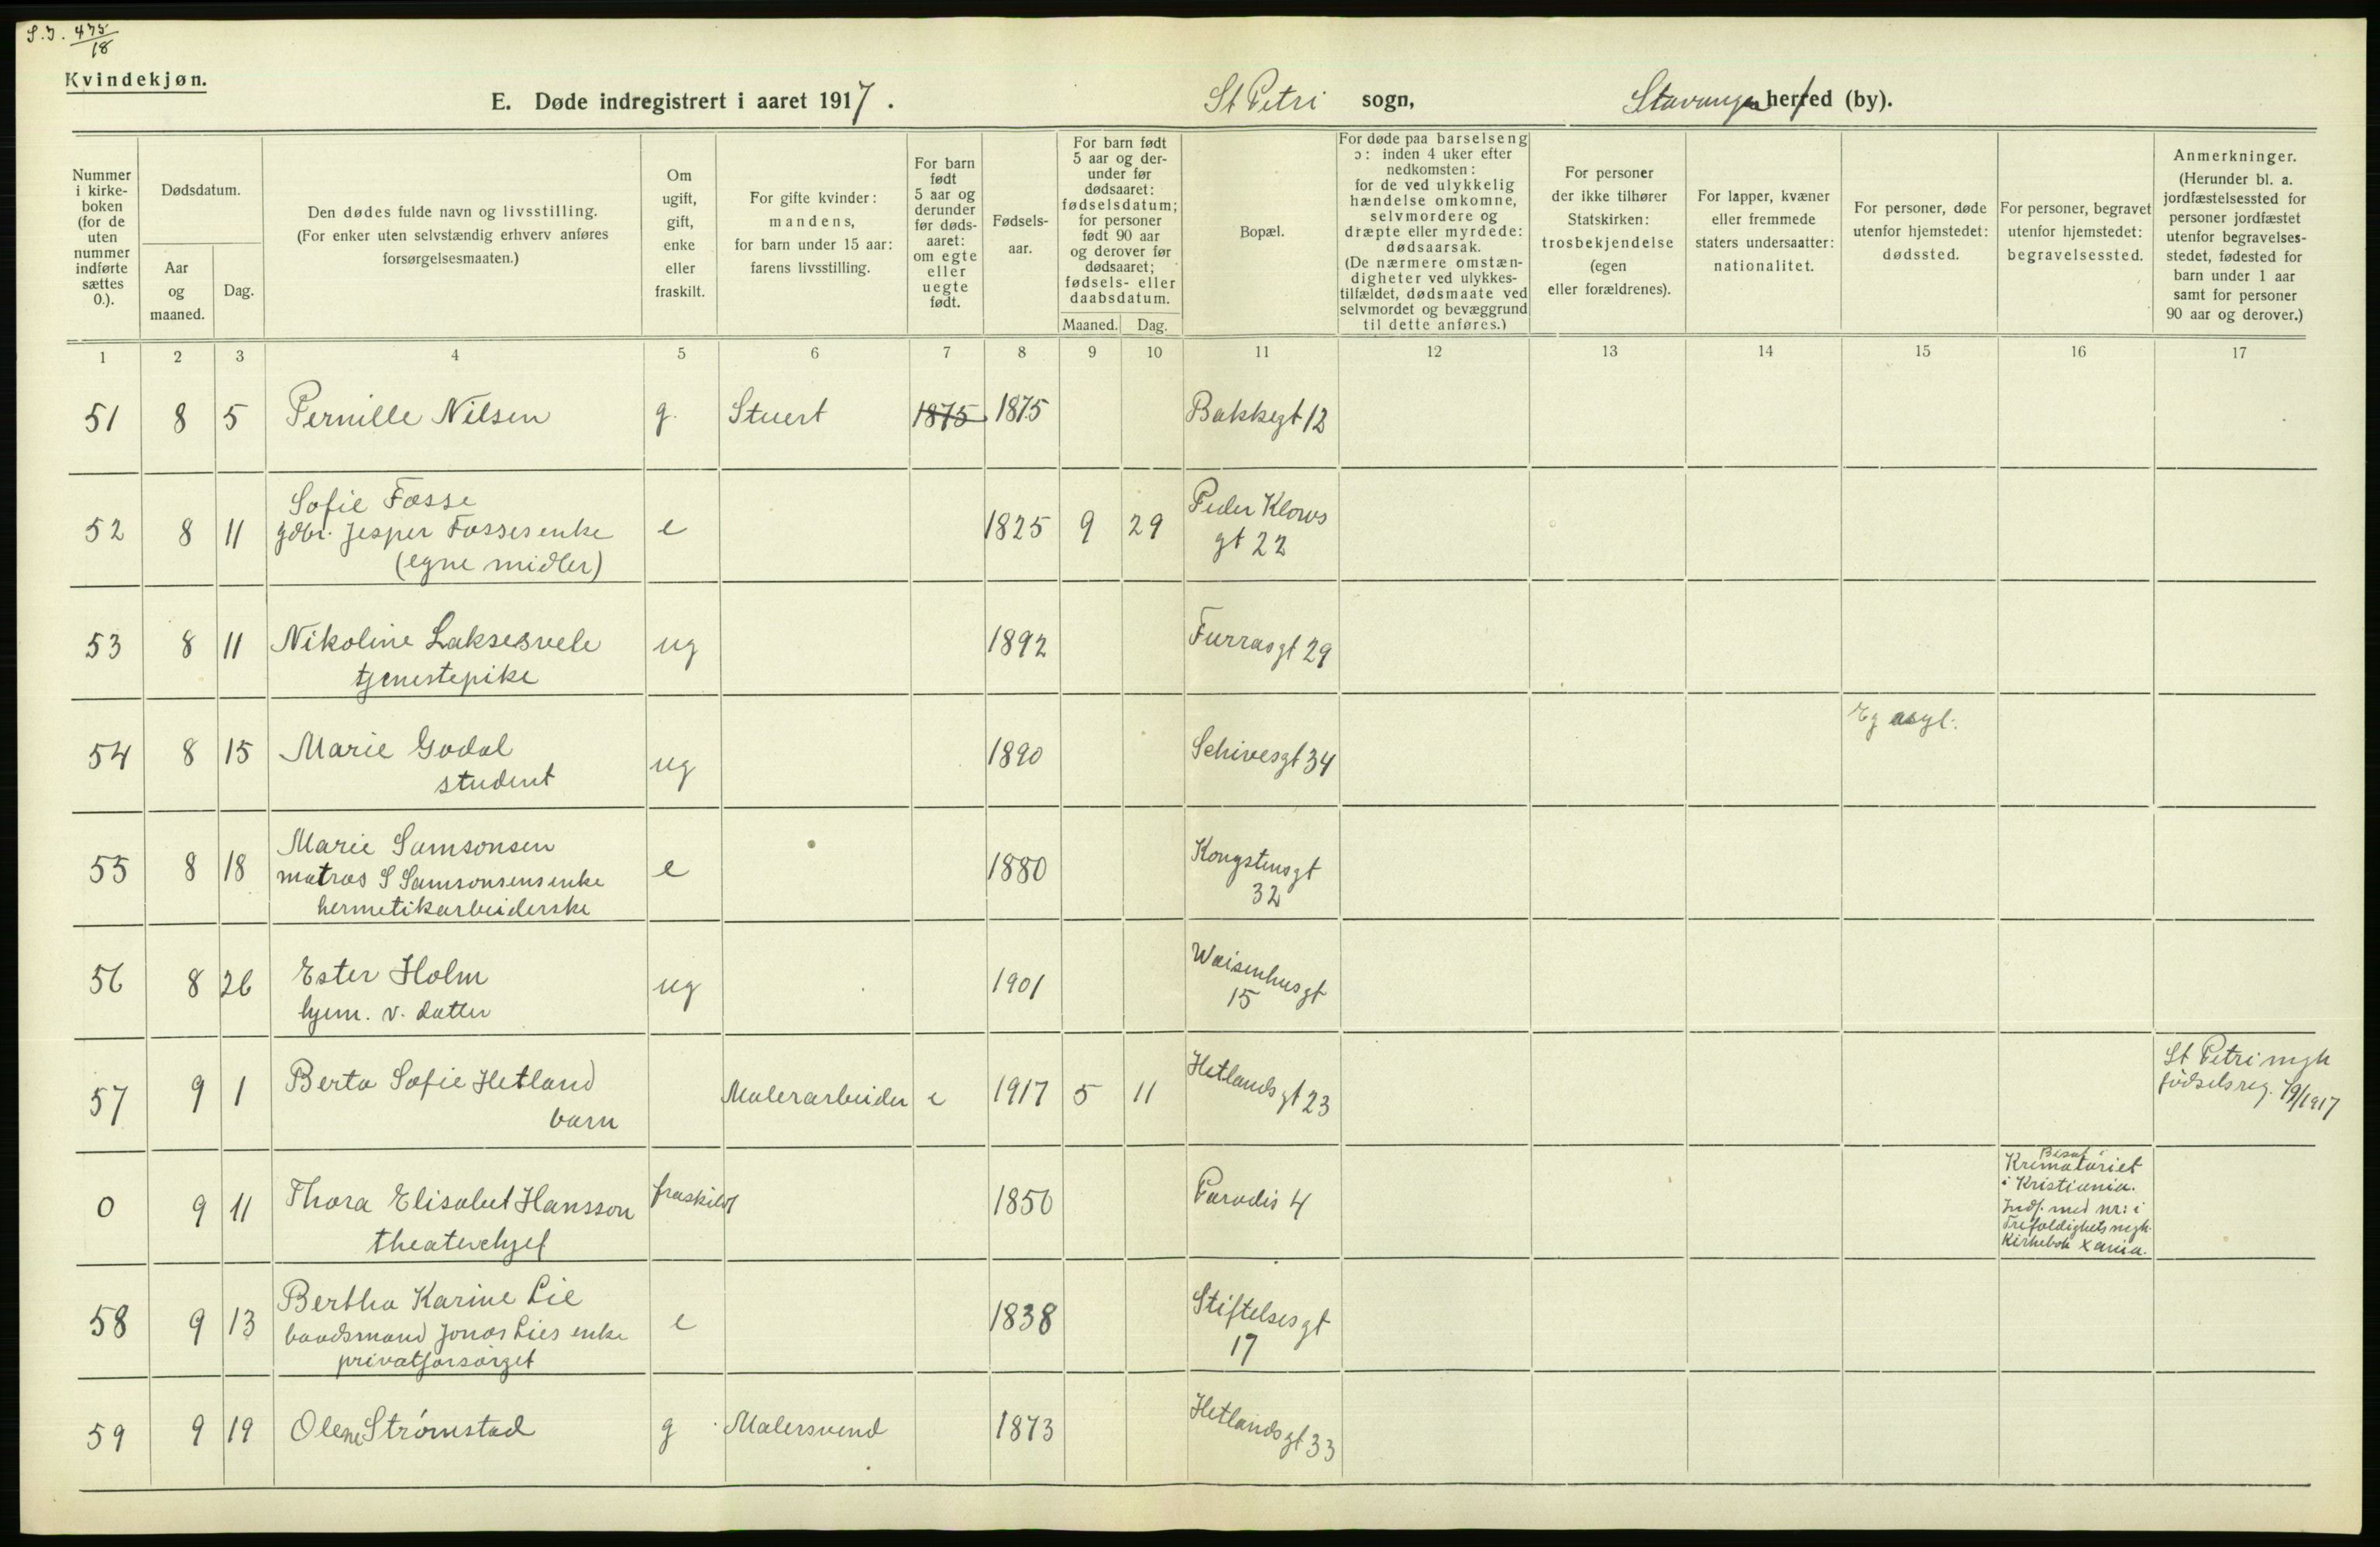 S.J. 475/18
Kvindekjøn.
E. Døde indregistrert i aaret 1917. St Petri sogn, Stavanger herred (by).
Nummer i kirkeboken (for de uten nummer indførte sættes 0.).
Dødsdatum.
Aar og maaned.
Dag.
Den dødes fulde navn og livsstilling.
(For enker uten selvstændig erhverv anføres
forsørgelsesmaaten.)
Om ugift, gift, enke eller fraskilt.
For gifte kvinder:
mandens,
for barn under 15 aar:
farens livsstilling.
For barn født 5 aar og derunder før dødsaaret: om egte eller uegte født.
Fødselsaar.
For barn født 5 aar og derunder før dødsaaret: fødselsdatum; for personer født 90 aar og derover før dødsaaret; fødsels- eller daabsdatum.
Maaned. Dag.
Bopæl.
For døde paa barselseng
ɔ: inden 4 uker efter
nedkomsten:
for de ved ulykkelig
hændelse omkomne,
selvmordere og
dræpte eller myrdede:
dødsaarsak.
(De nærmere omstæn-
digheter ved ulykkes-
tilfældet, dødsmaate ved
selvmordet og bevæggrund
til dette anføres.)
For personer
der ikke tilhører
Statskirken:
trosbekjendelse
(egen
eller forældrenes).
For lapper, kvæner
eller fremmede
staters undersaatter:
nationalitet.
For personer, døde
utenfor hjemstedet:
dødssted.
For personer, begravet
utenfor hjemstedet:
begravelsessted.
Anmerkninger.
(Herunder bl. a.
jordfæstelsessted for
personer jordfæstet
utenfor begravelses-
stedet, fødested for
barn under 1 aar
samt for personer
90 aar og derover.)
1 2 3 4 5 6 7 8 9 10 11 12 13 14 15 16 17
51 8 5 Pernille Nilsen g. Stuert 1875 1875 Bakkegt 12
52 8 11 Sofie Fosse
gdbr. Jesper Fosses enke
(egne midler) e 1825 9 29 Peder Klows
gt 22
53 8 11 Nikoline Laksesvele
tjenestepike ug 1892 Furrasgt 29
54 8 15 Marie Godal
student ug 1890 Schivesgt 34 Eg asyl.
55 8 18 Marie Samsonsen
matros S Samsonsens enke
hermetikarbeiderske e 1880 Kongstensgt
32
56 8 26 Ester Holm
hjem. v. datter ug 1901 Waisenhusgt
15
57 9 1 Berta Sofie Hetland
barn Malerarbeider e 1917 5 11 Hetlandsgt 23 St Petri mgh
fødselsreg. 79/1917
0 9 11 Thora Elisabet Hansson
theaterchef fraskildt 1850 Paradis 4 Bisat i
Krematoriet
i Kristiania.
Indf. med nr: i
Trefoldighets mgh.
Kirkebok Xania.
58 9 13 Bertha Karine Lie
baadsmand Jonas Lies enke
privatforsørget e 1838 Stiftelsesgt
17
59 9 19 Olene Strømstad g Malersvend 1873 Hetlandsgt 33